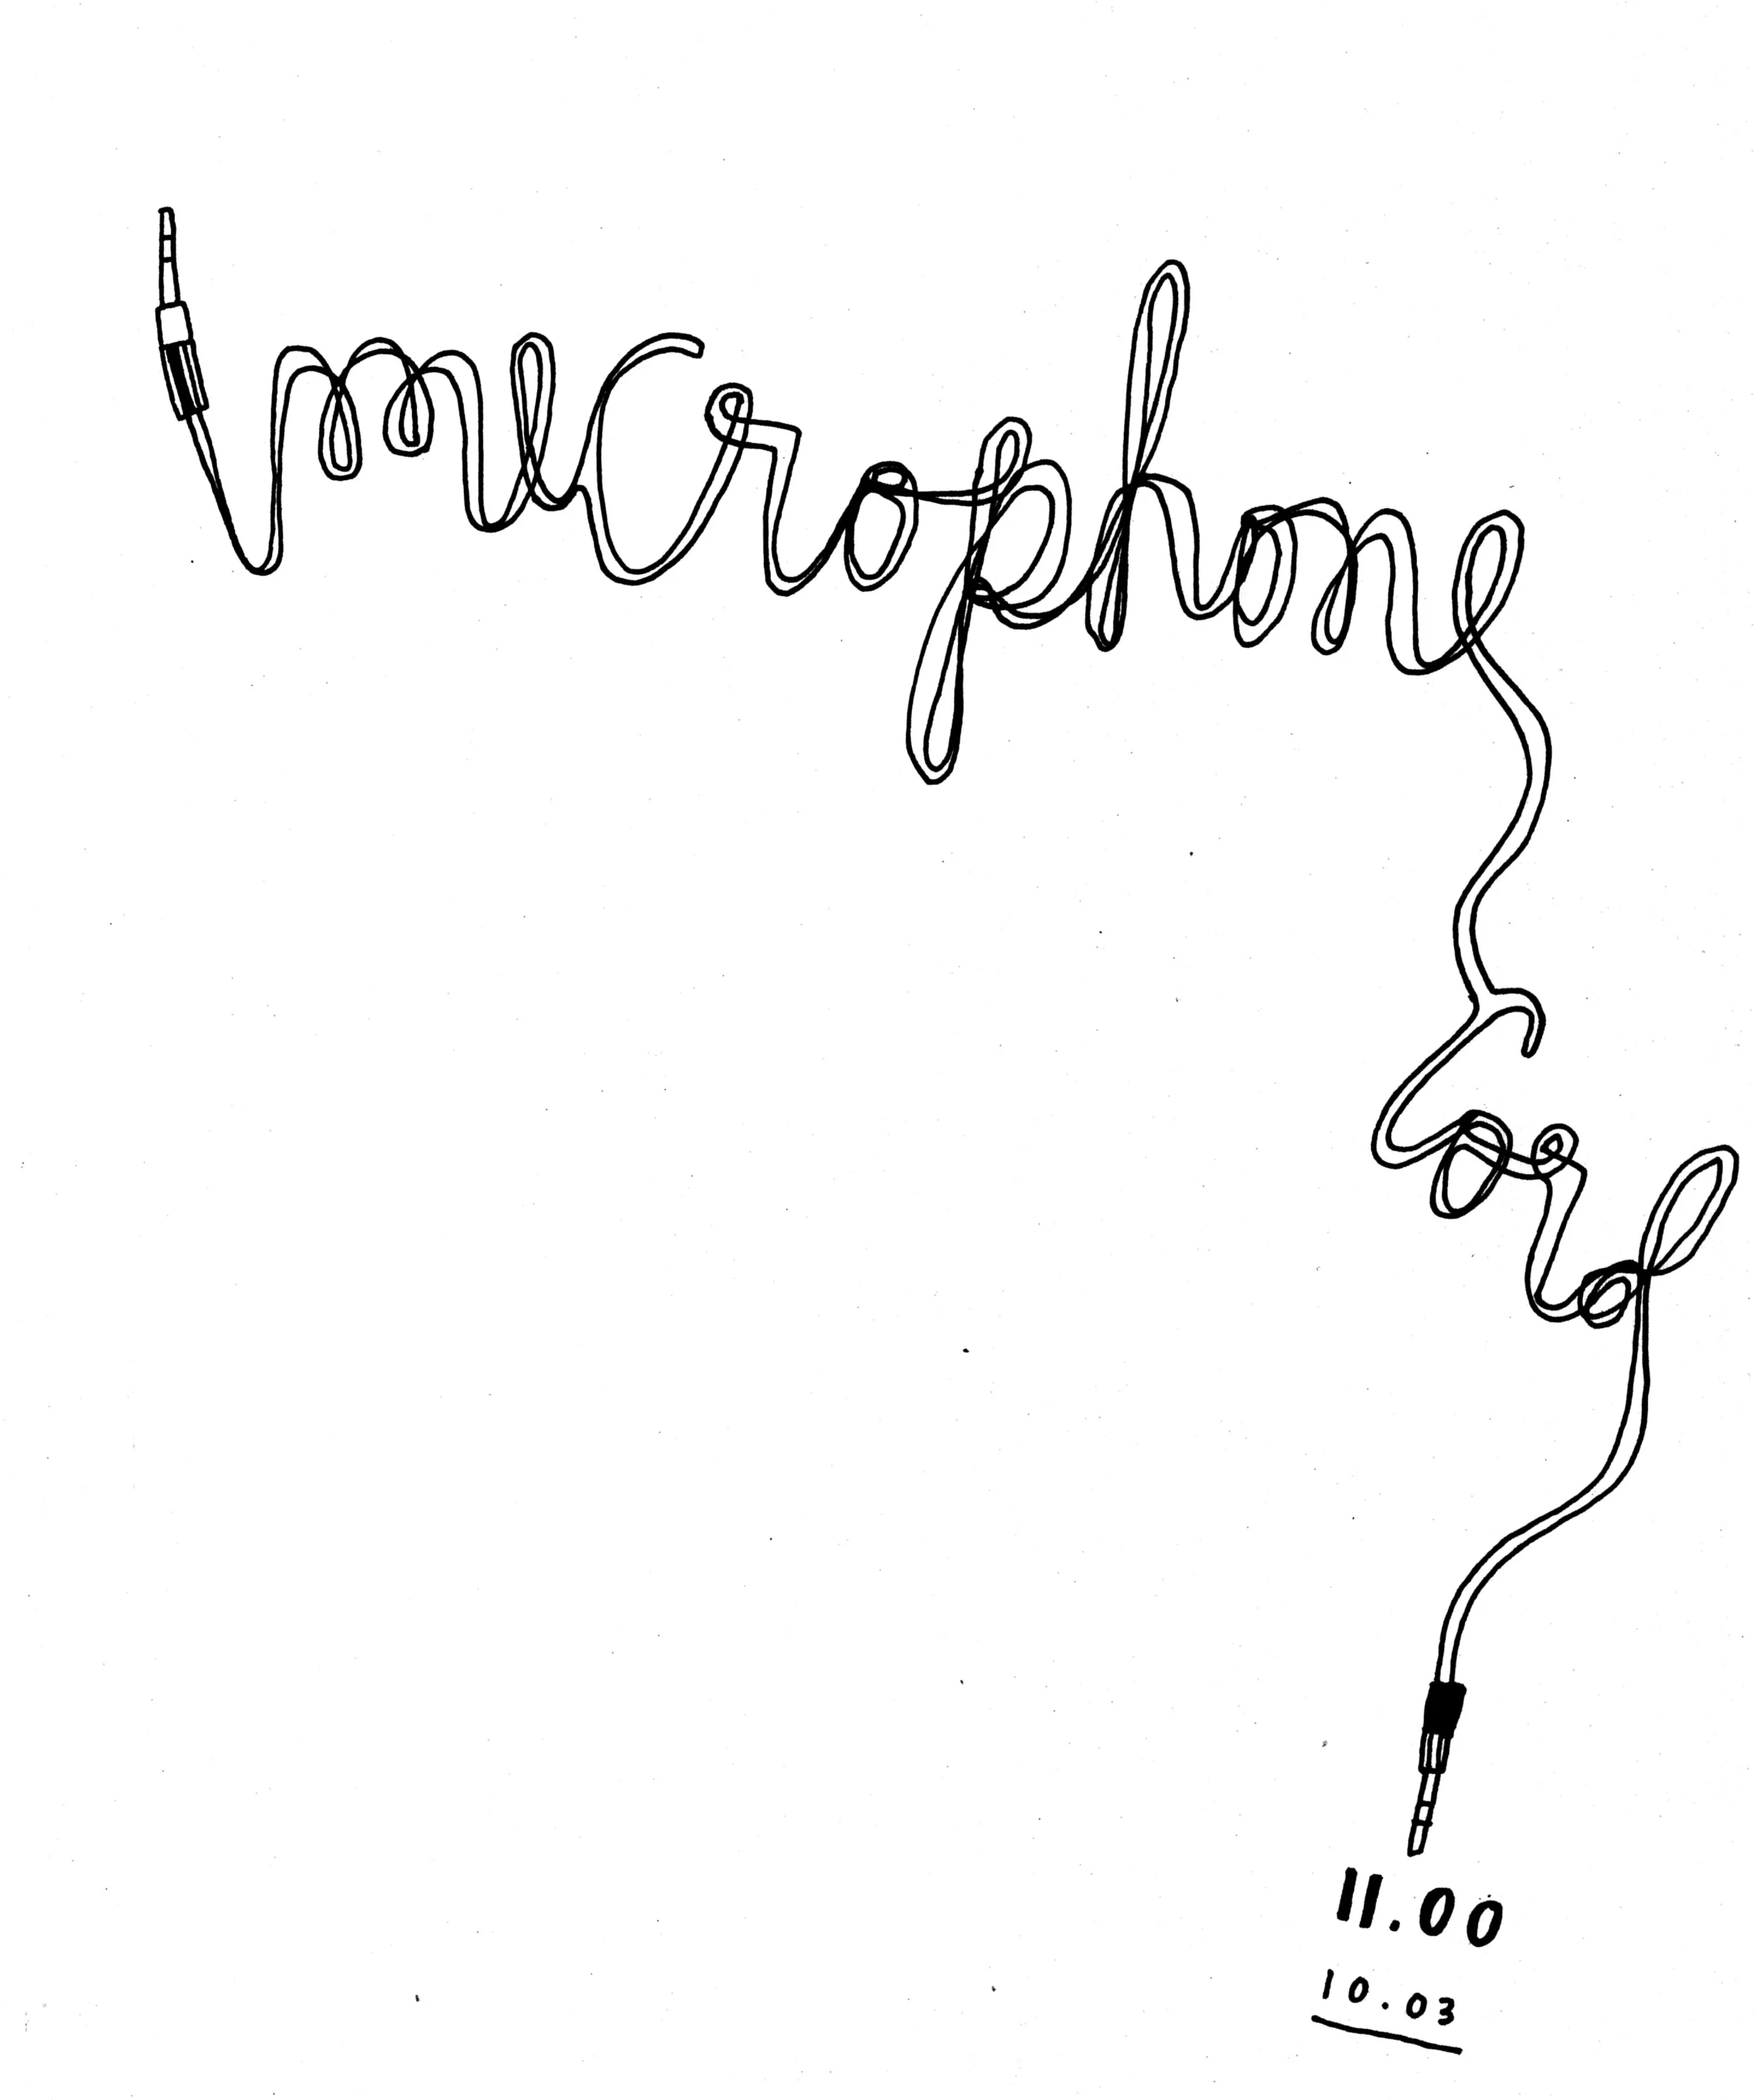 microphone
cord
11.00
10.03